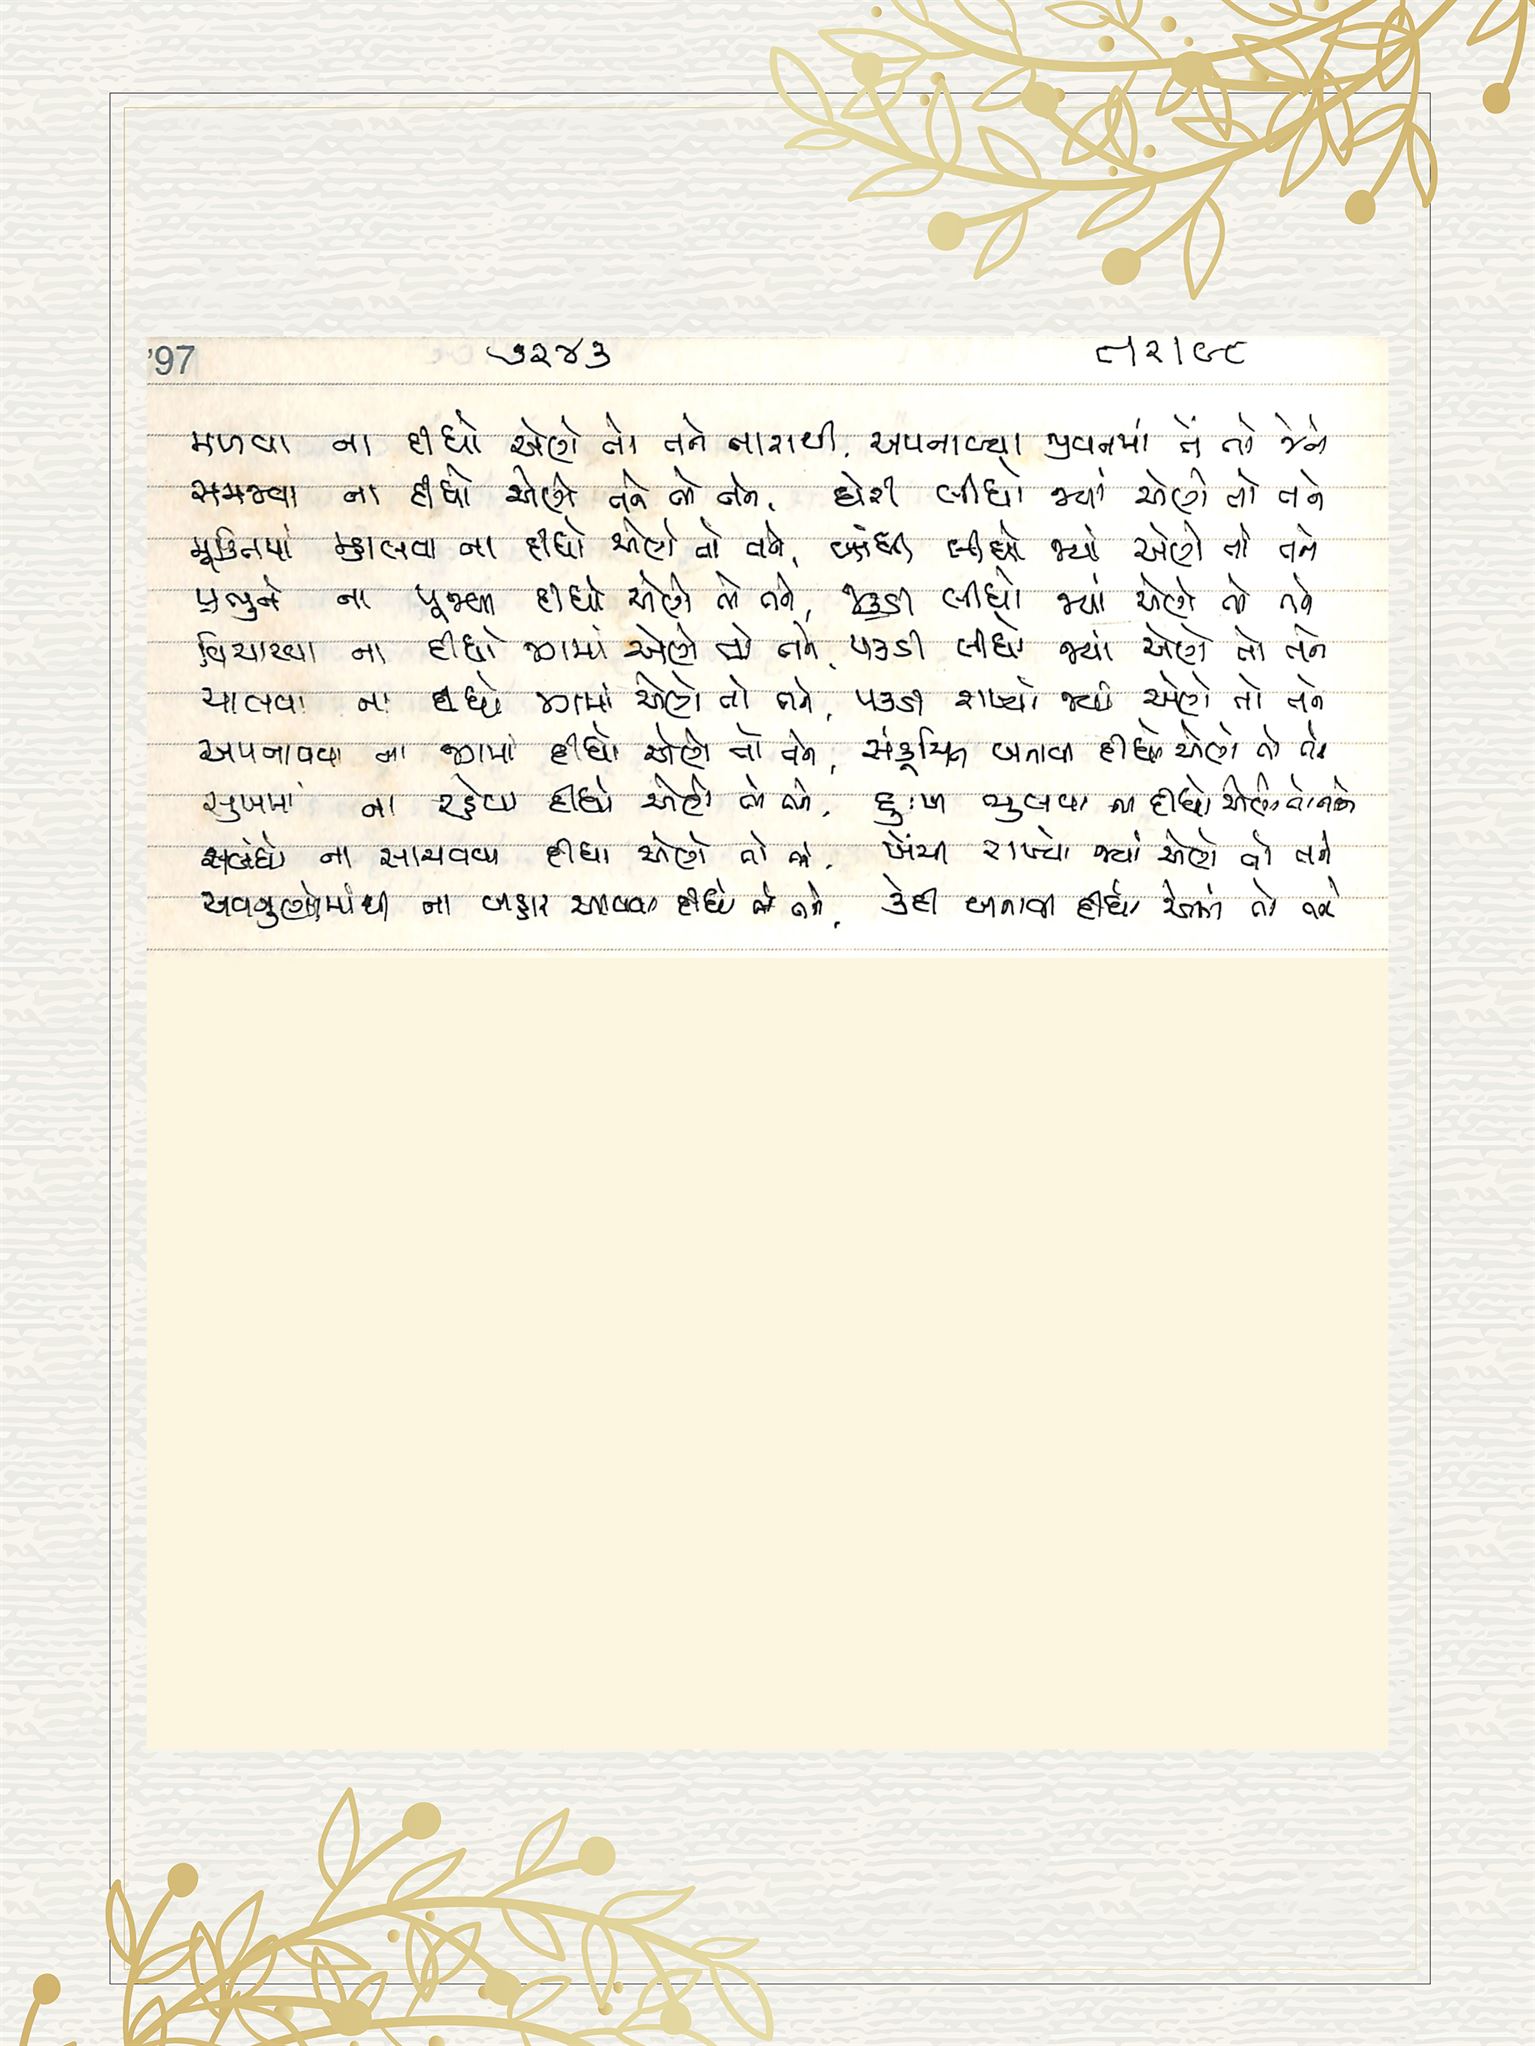 '97 ૭૨૪૩ તારા૯૮
મળવા ના દીધો એણે તો તને તારાથી, અપનાવ્યા જીવનમાં તેં તો જેને
સમજવા ના દીધો એણે તને તો તને, ઘેરી લીધો જ્યાં એણે તો તને
મુક્તિમાં મ્હાલવા ના દીધો એણે તો તને, બાંધી લીધો જ્યાં એણે તો તને
પ્રભુને ના પૂજવા દીધો એણે તો તને, જકડી લીધો જ્યાં એણે તો તને
વિચારવા ના દીધો જગમાં એણે તો તને, પકડી લીધો જ્યાં એણે તો તને
ચાલવા ના દીધો જગમાં એણે તો તને, પકડી રાખ્યો જ્યાં એણે તો તને
અપનાવવા ના જગમાં દીધો એણે તો તને, સંકૂચિત બનાવી દીધો એણે તો તને
સુખમાં ના રહેવા દીધો એણે તો તને, દુઃખ ભુલવા ના દીધો એણે તો તને
સબંધો ના સાચવવા દીધા એણે તો તને, ખેંચી રાખ્યો જ્યાં એણે તો તને
અવગુણોમાંથી ના બહાર આવવા દીધો તો તને, કેદી બનાવી દીધો એણે તો તને